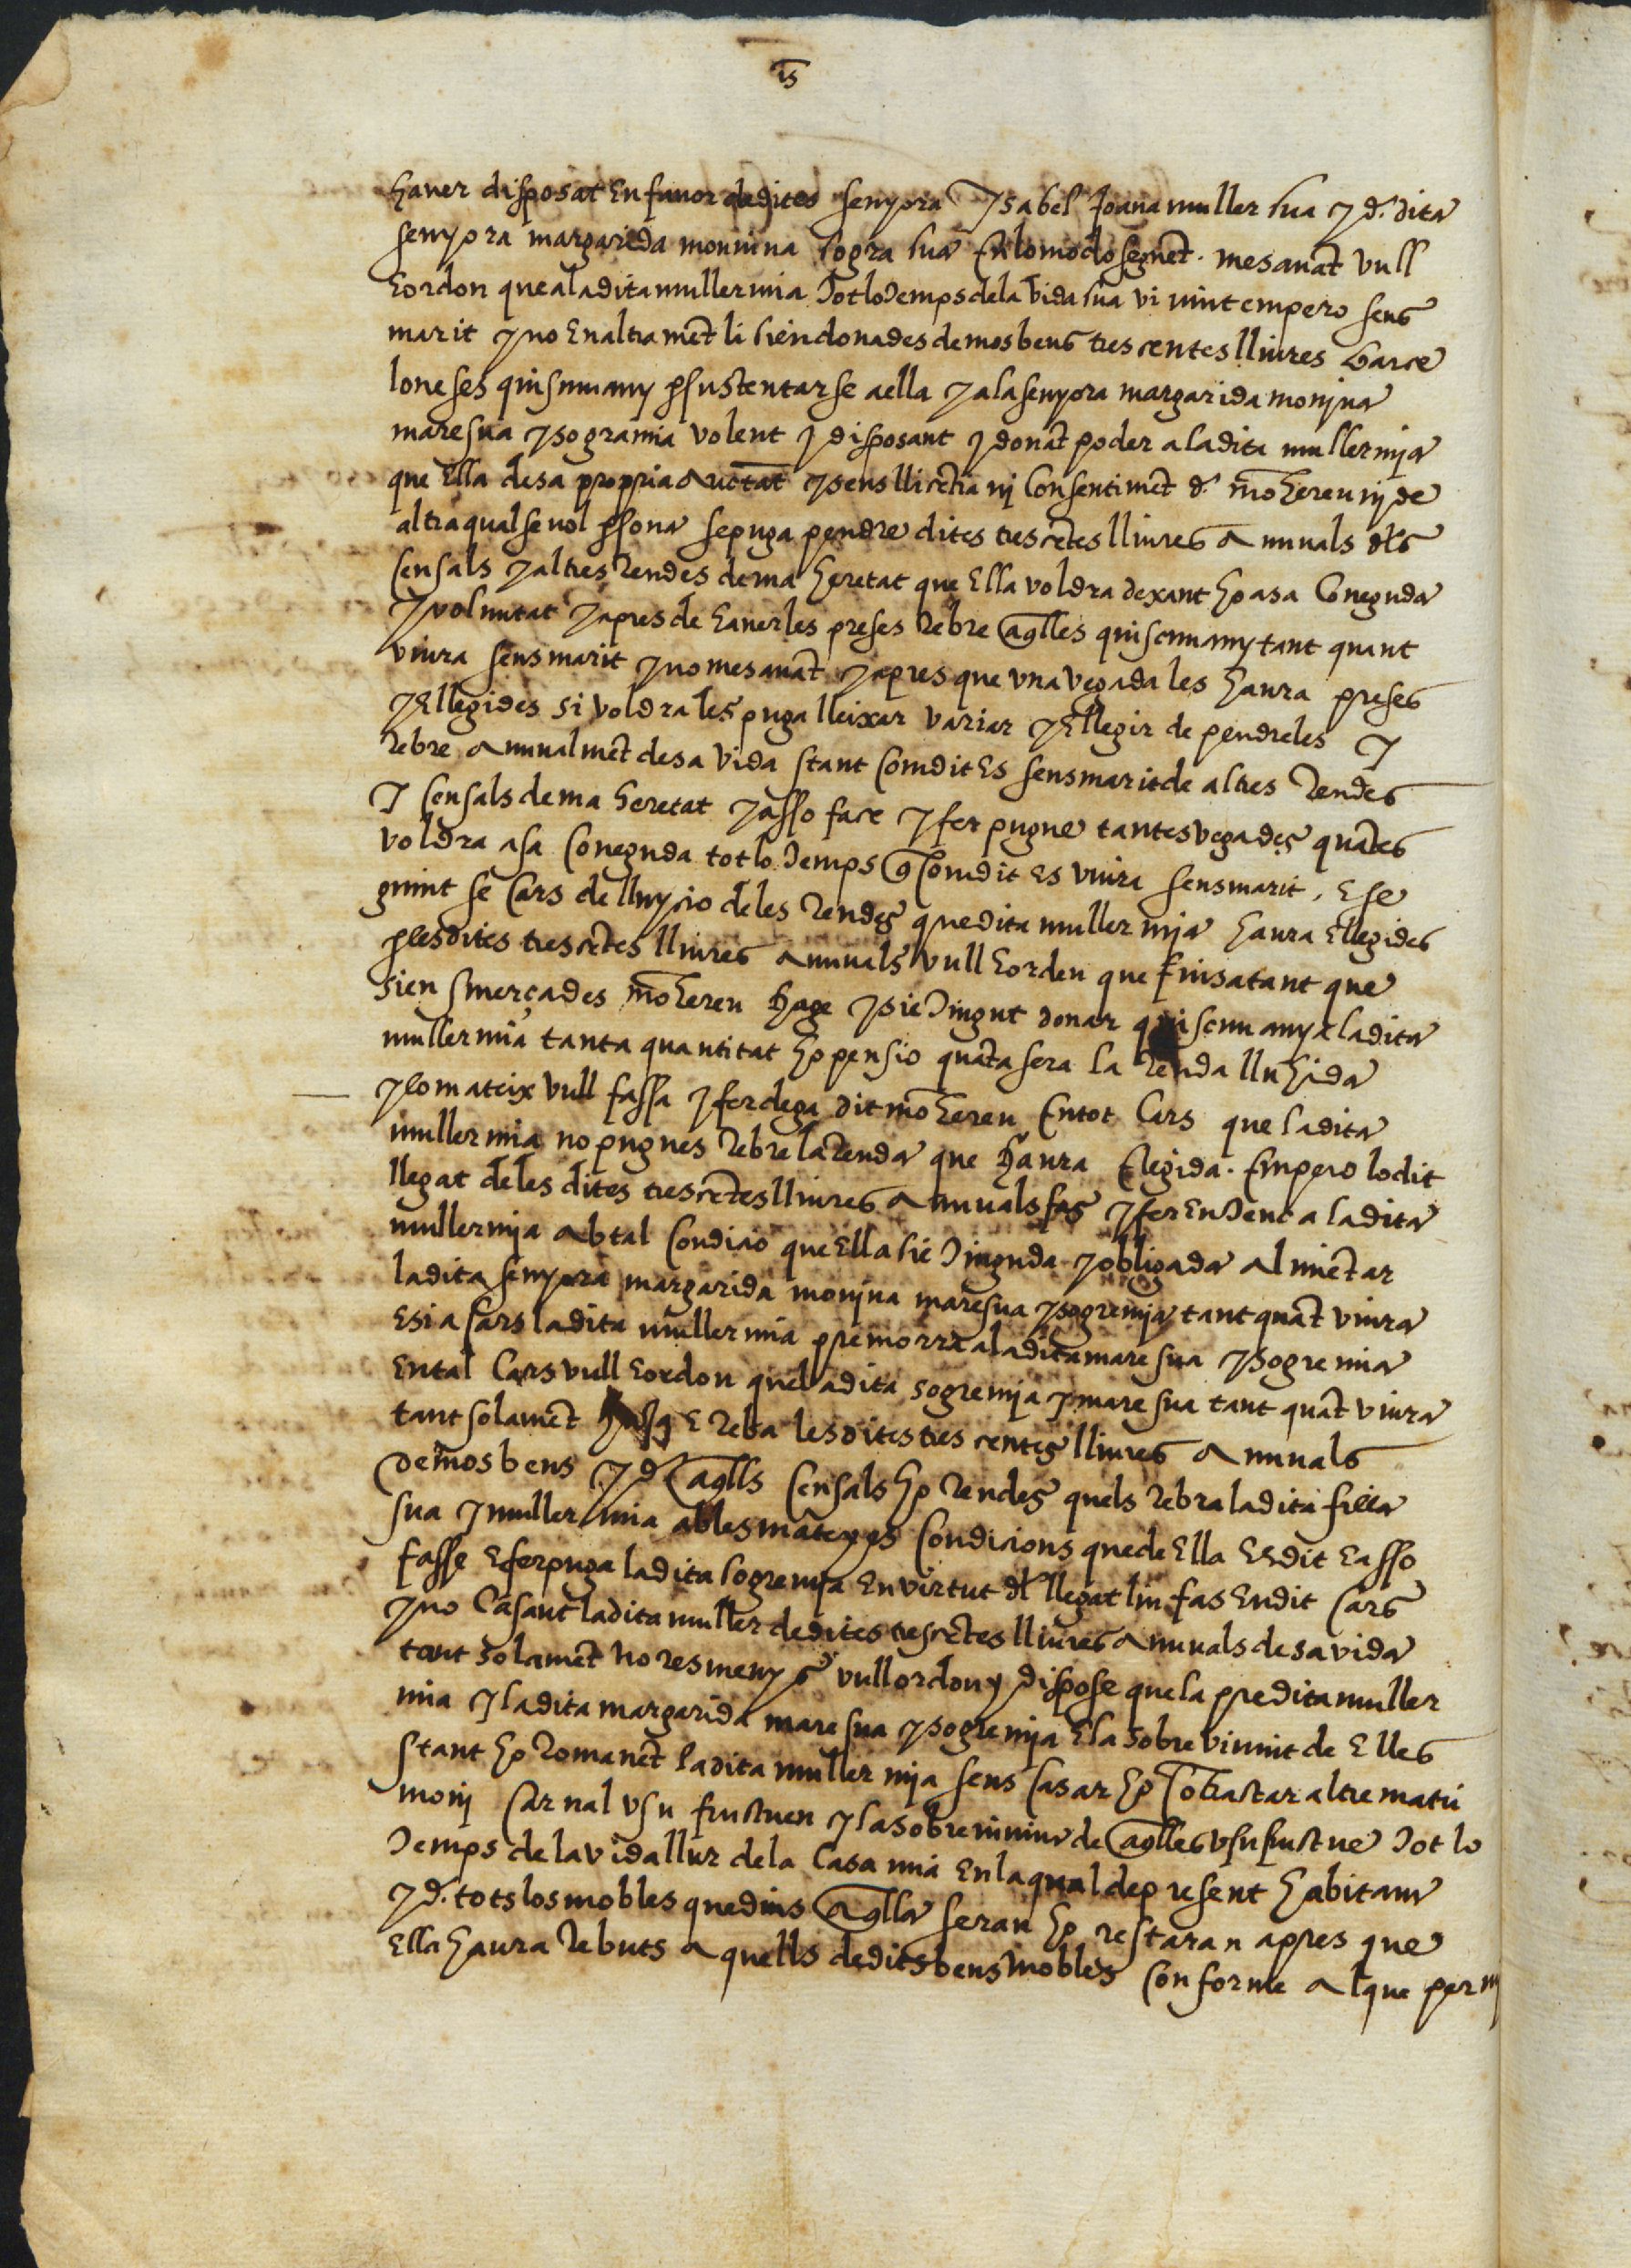 is
haver disposat en favor de dites senyora Ysabel Joana muller sua y d. dita
senyora margarida monnina sogra sua en lo modo seguet. mes avāt vull
E ordon que a la dita muller mia tot lo temps de la vida sua vivint empero sens
marit y no en altra mēt li sien donades de mos bens tres centes lliures barce
loneses quiscun any p sustentarse a ella y a la senyora margarida monjna
mare sua y sogra mia volent y disposant y donāt poder a la dita muller mja
que Ella de sa propria auctat y sens llicētia nj consentimēt d. mō hereu nj de
altra qualsevol psona se puga pendre dites tres cētes lliures annuals dls
censals y altres rendes de ma heretat que Ella voldra dexant ho a sa coneguda
y voluntat y apres de haverles preses rebre aqlles quiscun any tant quant
viura sens marit y no mes avāt y apres que una vegada les haura preses
y Ellegides si voldra les puga lleixar variar y Ellegir de pendreles y
rebre annualmēt de sa vida stant com dit Es sens marit de altres rendes
y censals de ma heretat y asso face y fer pugue tantes vegades quātes
voldra a sa coneguda tot lo temps q com dit es viura sens marit. E se
guint se cars de lluycio de les rendes que dita muller mja haura Ellegides
p les dites tres cētes lliures annuals vull E orden que fins a tant que
sien smerçades mō hereu hage y sie tingut donar quiscun any a la dita
muller mia tanta quantitat ho pensio quāta sera la renda lluhida
y lo mateix vull fassa y fer dega dit mō hereu En tot cars que la dita
muller mia no pugues rebre la renda que haura Elegida. Empero lo dit
llegat de les dites tres cētes lliures annuals fas y fer entenc a la dita
muller mja ab tal condicio que Ella sie tinguda y obligada alimētar
la dita senyora margarida monjna mare sua y sogre mja tant quāt viura
E si a cars la dita muller mia premorra a la dita mare sua y sogre mia
En tal cars vull E ordon que la dita sogre mja y mare sua tant quāt viura
tant solamēt E reba les dites tres centes lliures annuals
de mos bens y d aqlls censals ho rendes quels rebra la dita filla
sua y muller mia ab les mateyxes condicions que de Ella Es dit E asso
fasse E fer puga la dita sogre mja En virtut dl llegat lin fas En dit cars
y no casant la dita muller de dites tres cētes lliures annuals de sa vida
tant solamēt no res menys vull ordon y dispose que la predita muller
mia y la dita margarida mare sua y sogre mja E la sobrevivint de Elles
stant ho romanēt la dita muller mja sens casar ho cōtractar altre matri
monj carnal usufructuen y la sobrevivint de aqlles usufructue tot lo
temps de la vida llur de la casa mia En la qual de present habitam
y d. tots los mobles que dins aqlla seran ho restaran apres que
Ella haura rebuts aquells de dits bens mobles conforme al que per mj